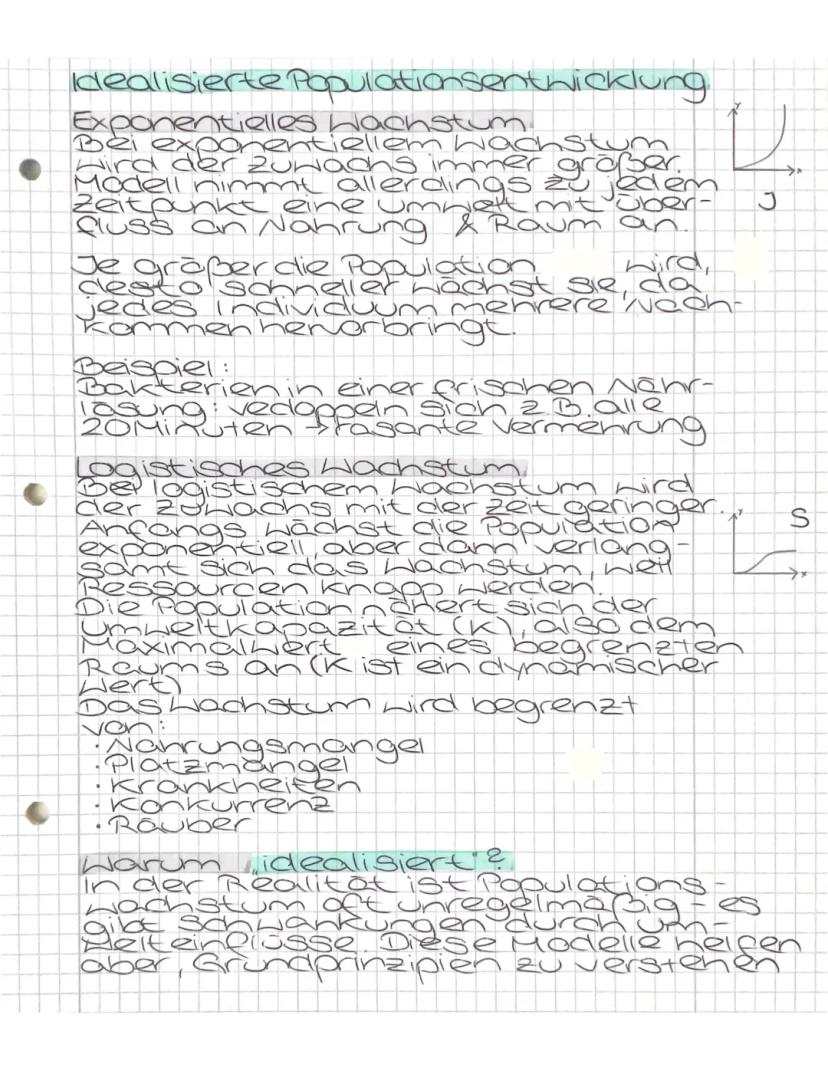 Idealisierte Populationsentwicklung
Exponentielles Wachstum
Bei exponentiellem Wachstum
wird der Zuwachs immer größer.
Modell nimmt allerdings zu jedem
Zeitpunkt eine Umwelt mit Über-
fluss an Nahrung & Raum an.
y
x
J
Je größer die Population wird,
desto schneller wächst sie, da
jedes Individuum mehrere Nach-
kommen hervorbringt.
Beispiel:
Bakterien in einer frischen Nähr-
lösung: vedoppeln sich z.B. alle
20 Minuten → rasante Vermehrung
Logistisches Wachstum
Bei logistischem Wachstum wird
der Zuwachs mit der Zeit geringer.
Anfangs wächst die Population
exponentiell, aber dann verlang-
samt sich das Wachstum, weil
Ressourcen knapp werden.
y
S
x
Die Population nähert sich der
Umweltkapazität (K), also dem
Maximalwert eines begrenzten
Raums an (K ist ein dynamischer
Wert)
Das Wachstum wird begrenzt
von:
· Nahrungsmangel
· Platzmangel
· Krankheiten
· Konkurrenz
· Räuber
Warum „idealisiert"?
In der Realität ist Populations-
wachstum oft unregelmäßig - es
gibt Schwankungen durch Um-
welteinflüsse. Diese Modelle helfen
aber, Grundprinzipien zu verstehen